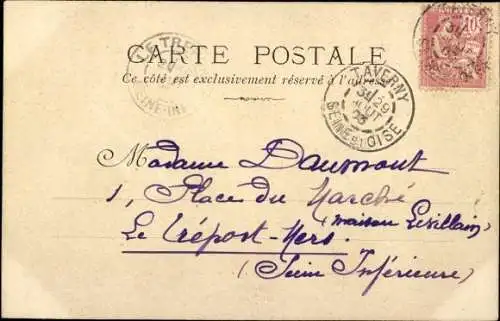 CARTE POSTALE
Ce côté est exclusivement réservé à l'adresse
TAVERNY
29
AOUT
SEINE ET OISE
10
LE TRE
SEINE-IN
Madame Daumont
1, Place du Marché
(maison Levillain)
Le Tréport-Mers.
(Seine Inférieure)